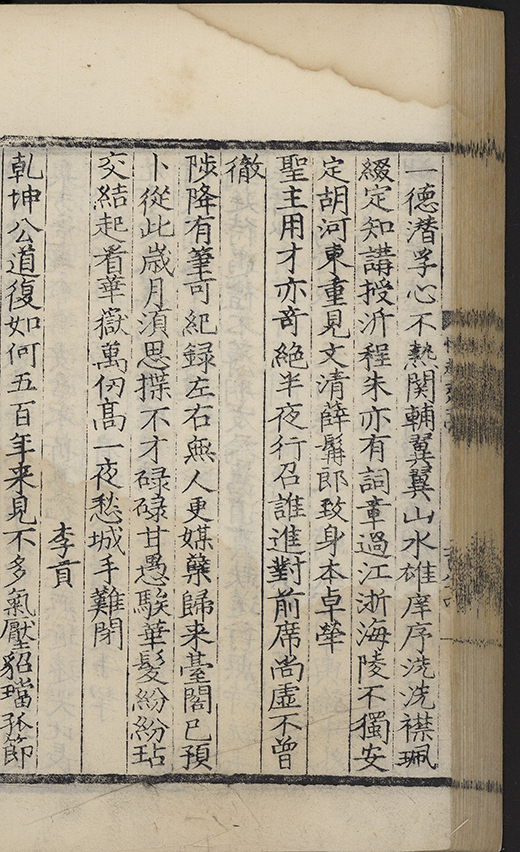 一德潛孚心不熱関輔翼翼山水雄庠序洸洸襟珮
綴定知講授沂程朱亦有詞章過江浙海陵不獨安
定胡河東重見文清薛髯郎致身本卓犖
聖主用才亦奇絶半夜行召誰進對前席尚虛不曾
徹
陟降有筆可紀録左右無人更媒糵歸来臺閣已預
卜從此歲月湏思揲不才碌碌甘愚騃華髮紛紛玷
交結起看華嶽萬仞髙一夜愁城手難閉
李貢
乾坤公道復如何五百年来見不多氣壓貂璫孤節